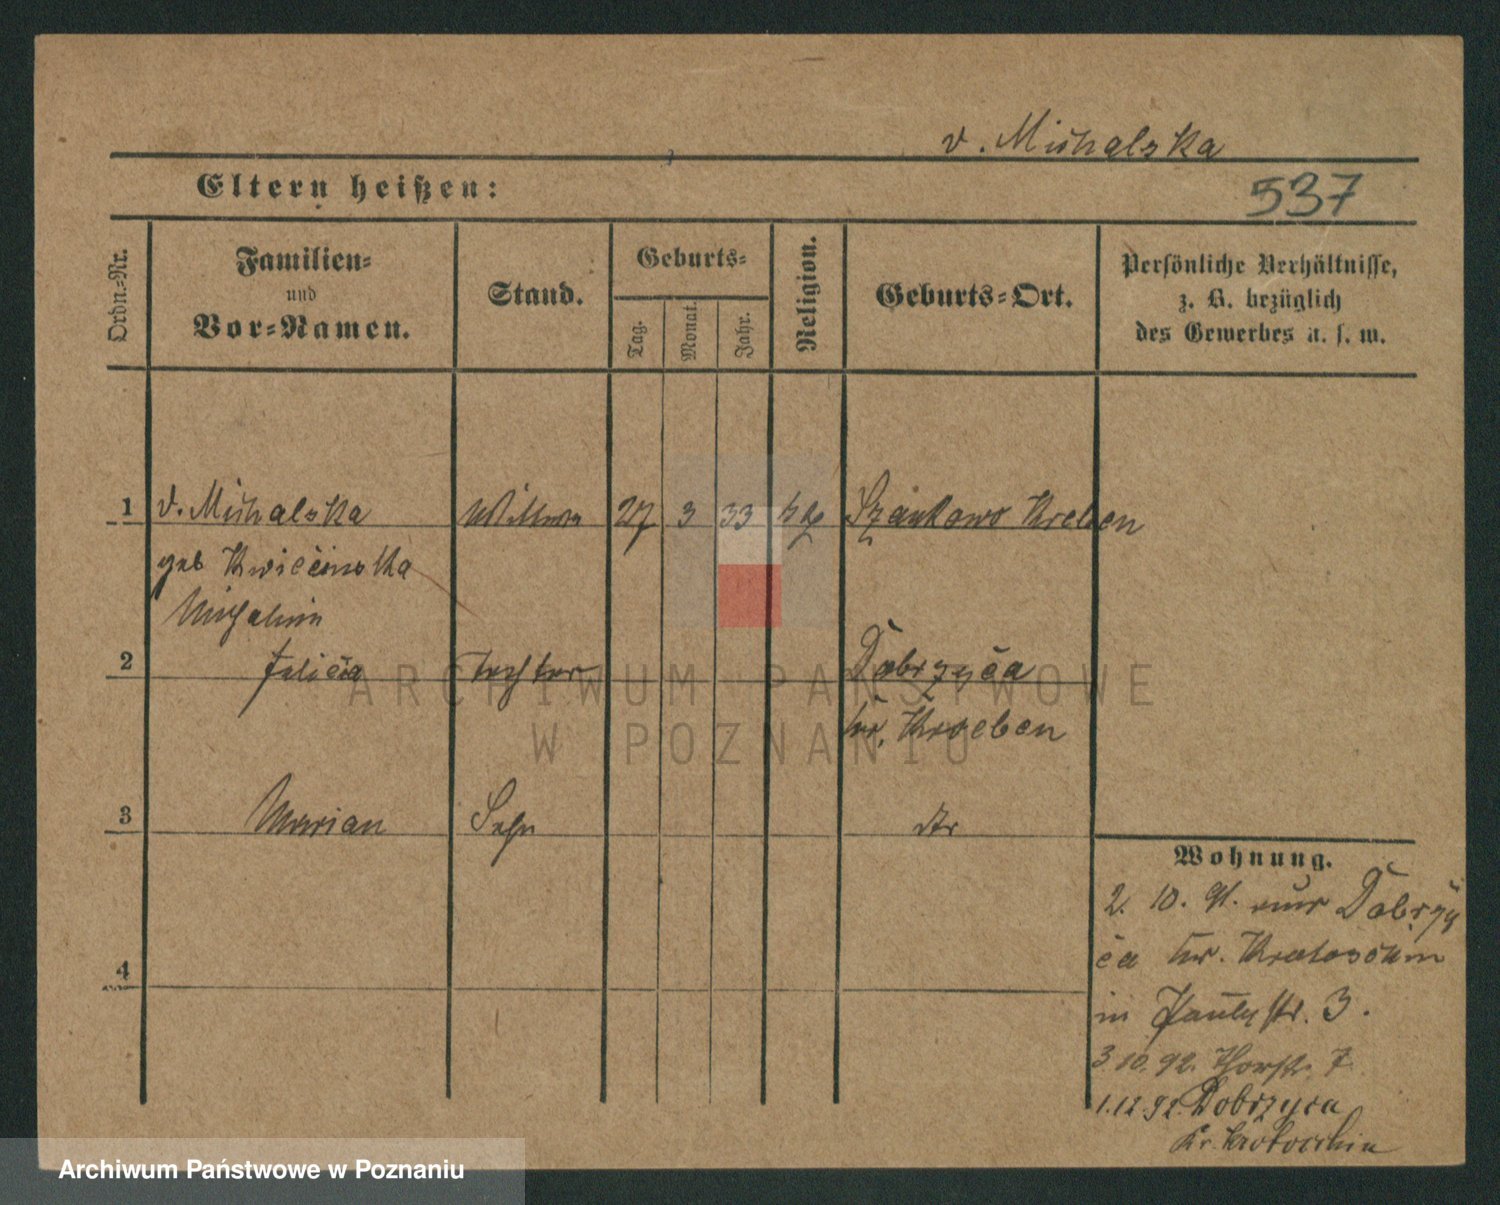 v. Michalska
Eltern heißen:
537
Ordn.-Nr.
Familien-
und
Vor-Namen.
Stand.
Geburts-
Tag.
Monat.
Jahr.
Religion.
Geburts-Ort.
Persönliche Verhältnisse,
z. B. bezüglich
des Gewerbes u. s. w.
1 v. Michalska Wittwe 27 3 33 Kreben
geb
2 Felicia Tochter Dobrzyca
Kr. Kroeben
3 Marian Sohn dto
Wohnung.
2. 10. 91. aus Dobrzy
ca Kr. Krotoschin
in Paulystr. 3.
4
3 10. 92. 7
1.12.92. Dobrzyca
Kr. Krotoschin
ARCHIWUM PAŃSTWOWE
W POZNANIU
Archiwum Państwowe w Poznaniu